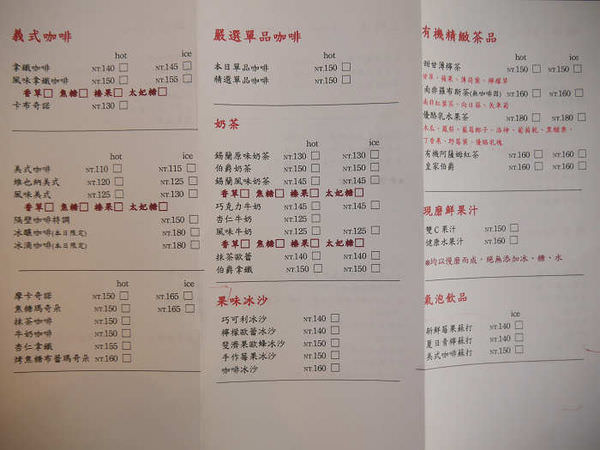 義式咖啡
hot ice
拿鐵咖啡 NT.140 □ NT.145 □
風味拿鐵咖啡 NT.150 □ NT.155 □
香草□ 焦糖□ 榛果□ 太妃糖□
卡布奇諾 NT.130 □
hot ice
美式咖啡 NT.110 □ NT.115 □
維也納美式 NT.120 □ NT.125 □
風味美式 NT.125 □ NT.130 □
香草□ 焦糖□ 榛果□ 太妃糖□
隔壁咖啡特調 NT.150 □
冰釀咖啡(本日限定) NT.180 □
冰滴咖啡(本日限定) NT.180 □
hot ice
摩卡奇諾 NT.150 □ NT.165 □
焦糖瑪奇朵 NT.150 □ NT.165 □
抹茶咖啡 NT.150 □
牛奶咖啡 NT.150 □
杏仁拿鐵 NT.155 □
烤焦糖布蕾瑪奇朵 NT.160 □
嚴選單品咖啡
hot ice
本日單品咖啡 NT.150 □
精選單品咖啡 NT.150 □
奶茶
hot ice
錫蘭原味奶茶 NT.130 □ NT.130 □
伯爵奶茶 NT.150 □ NT.150 □
錫蘭風味奶茶 NT.145 □ NT.145 □
香草□ 焦糖□ 榛果□ 太妃糖□
巧克力牛奶 NT.145 □ NT.145 □
杏仁牛奶 NT.125 □
風味牛奶 NT.125 □ NT.125 □
香草□ 焦糖□ 榛果□ 太妃糖□
抹茶歐蕾 NT.140 □ NT.140 □
伯爵拿鐵 NT.150 □ NT.150 □
果味冰沙
巧可利冰沙 NT.140 □
檸檬歐蕾冰沙 NT.140 □
斐濟果歐蜂冰沙 NT.150 □
手作莓果冰沙 NT.150 □
咖啡冰沙 NT.160 □
有機精緻茶品
hot ice
甜甘薄檸茶 NT.150 □ NT.150 □
甘草、蘋果、薄荷葉、檸檬草
南非羅布斯茶(無咖啡因) NT.160 □ NT.160 □
南非紅葉茶、向日葵、矢車菊
優酪乳水果茶 NT.180 □ NT.180 □
木瓜、鳳梨、蘿蔔椰子、洛神、葡萄乾、黑醋栗、
丁香果、野莓葉、優酪乳塊
有機阿薩姆紅茶 NT.160 □ NT.160 □
皇家伯爵 NT.160 □ NT.160 □
現磨鮮果汁
雙C果汁 NT.150 □
健康水果汁 NT.160 □
※均以慢磨而成，絕無添加冰、糖、水
氣泡飲品
ice
新鮮莓果蘇打 NT.140 □
夏日青檸蘇打 NT.140 □
美式咖啡蘇打 NT.150 □